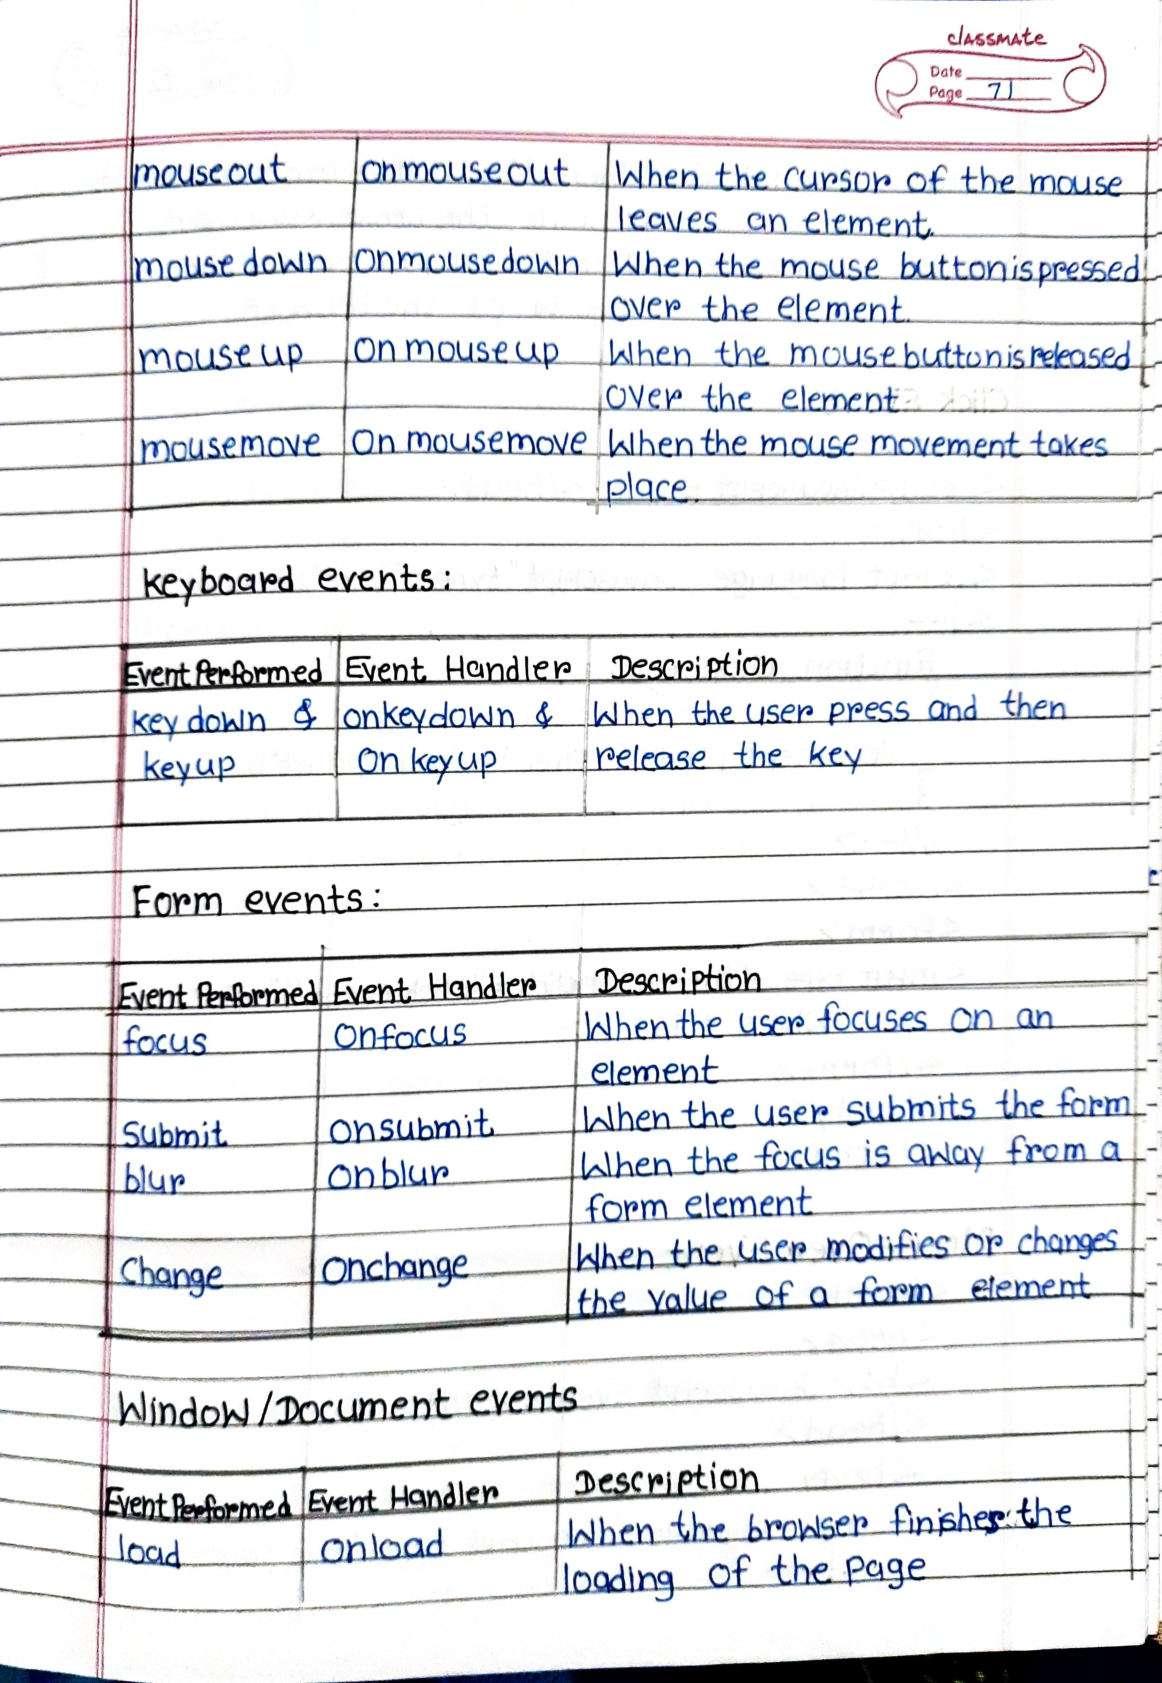 classmate
Date
Page 71
mouseout onmouseout When the cursor of the mouse
leaves an element.
mousedown onmousedown When the mouse button is pressed
over the element.
mouseup onmouseup When the mouse button is released
over the element
mousemove onmousemove When the mouse movement takes
place.
keyboard events:
Event Performed Event Handler Description
keydown & onkeydown & When the user press and then
keyup onkeyup release the key
Form events:
Event Performed Event Handler Description
focus onfocus When the user focuses on an
element
submit onsubmit When the user submits the form
blur onblur When the focus is away from a
form element
Change Onchange When the user modifies or changes
the value of a form element
Window/Document events
Event Performed Event Handler Description
load onload When the browser finishes the
loading of the page